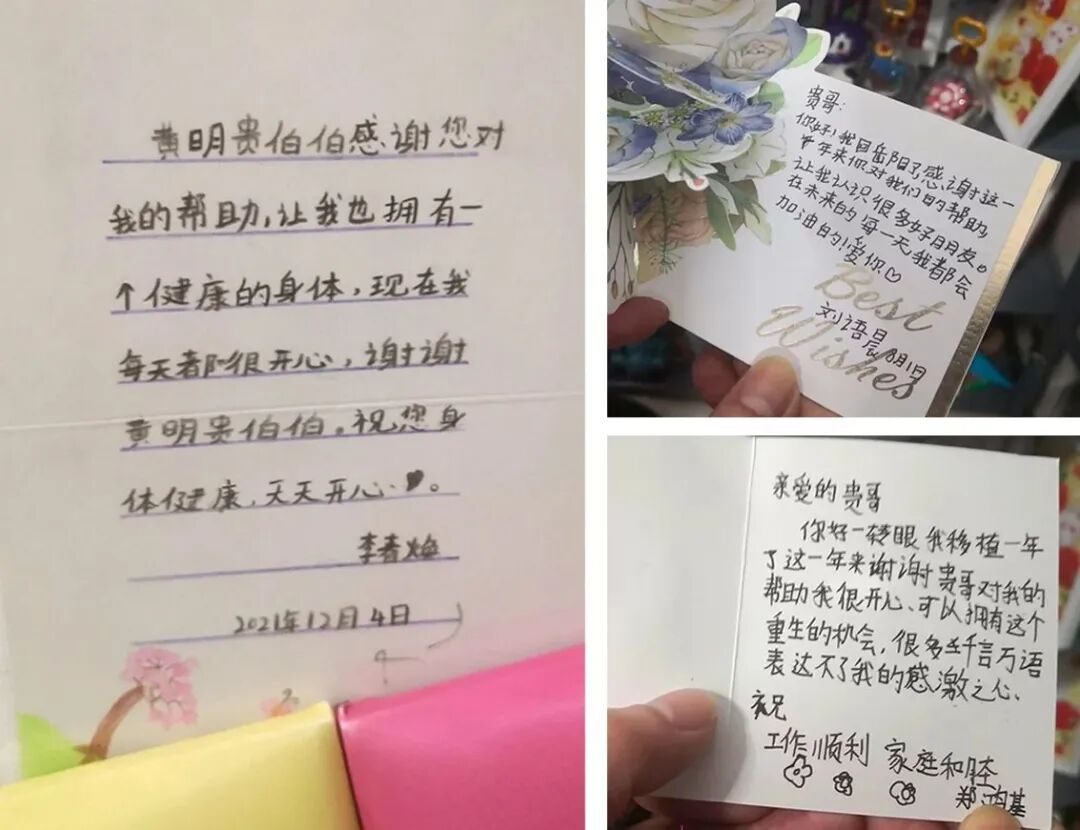 黄明贵伯伯感谢您对
我的帮助,让我也拥有一
个健康的身体,现在我
每天都很开心,谢谢
黄明贵伯伯。祝您身
体健康,天天开心♥。
李春焕
2021年12月4日
贵哥:
你好!我回岳阳了,感谢这一
年来你对我们的帮助,
让我认识很多好朋友。
在未来的每一天,我都会
加油的!爱你♡
Best
Wishes
刘语晨8月1日
亲爱的贵哥
你好一转眼我移植一年
了这一年来谢谢贵哥对我的
帮助我很开心、可以拥有这个
重生的机会,很多千言万语
表达不了我的感激之心、
祝
工作顺利 家庭和睦
郑鸿基